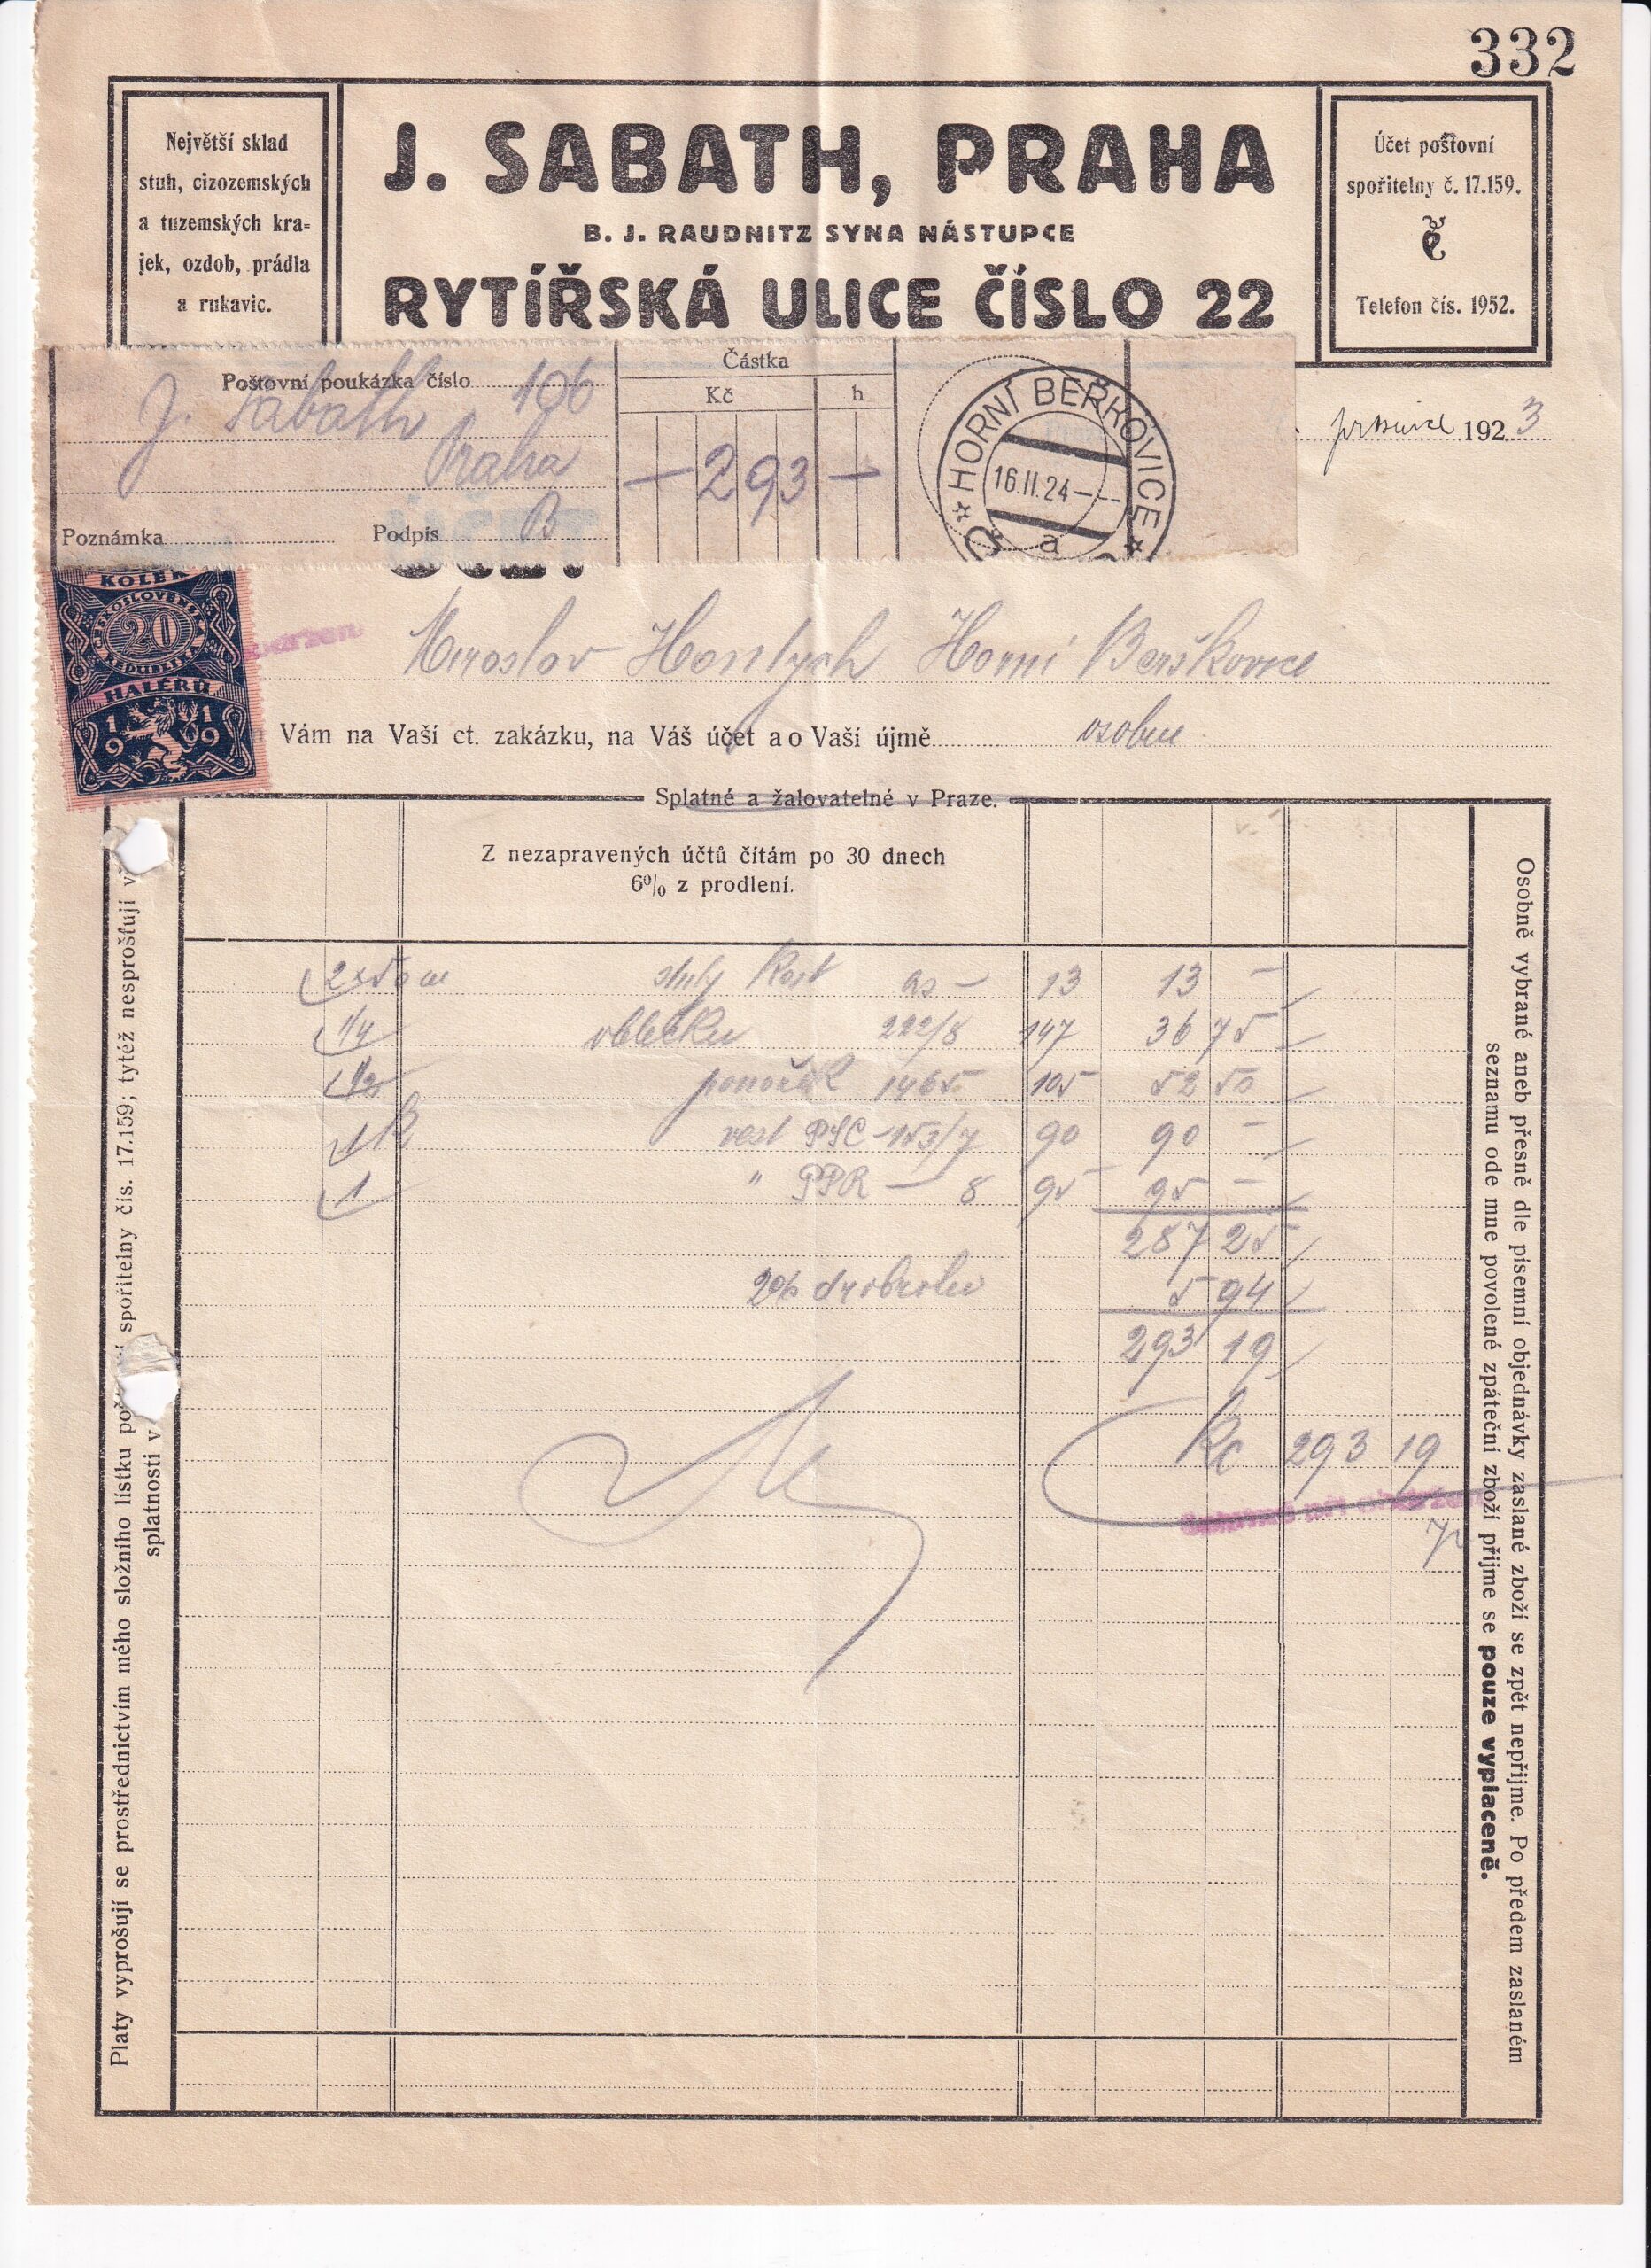 332
Největší sklad
stuh, cizozemských
a tuzemských kra-
jek, ozdob, prádla
a rukavic.
J. SABATH, PRAHA
B. J. RAUDNITZ SYNA NÁSTUPCE
RYTÍŘSKÁ ULICE ČÍSLO 22
Účet poštovní
spořitelny č. 17.159.
Telefon čís. 1952.
Poštovní poukázka číslo 106
J. Sabath
Praha
Poznámka
Podpis B
Částka
Kč h
— 293 —
HORNÍ BEŘKOVICE
16.II.24
a
prosince 1923
KOLEK
20
HALÉŘŮ
1919
Miroslav Horní Beřkovice
Vám na Vaší ct. zakázku, na Váš účet a o Vaší újmě osobne
Splatné a žalovatelné v Praze.
Z nezapravených účtů čítám po 30 dnech
6% z prodlení.
2x50 m stuhy 13 13 —
1/4 222/8 147 36 75
1/2 1465 105 52 50
1 vest 153/7 90 90 —
1 " PPR — 8 95 95 —
287 25
2% 5 94
293 19
Kc 293 19
Platy vyprošují se prostřednictvím mého složního lístku spořitelny čís. 17.159; tytéž nesprošťují
splatnosti v
Osobně vybrané aneb přesně dle písemní objednávky zaslané zboží se zpět nepřijme. Po předem zaslaném
seznamu ode mne povolené zpáteční zboží přijme se pouze vyplaceně.